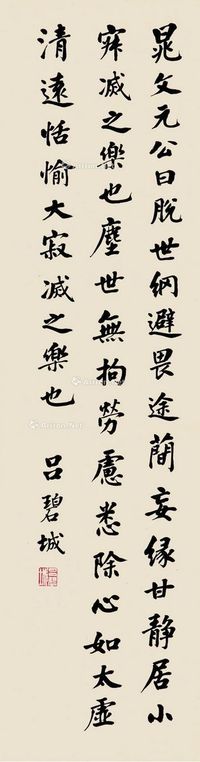 晁文元公曰脫世網避畏途蕳妄緣甘靜居小
寂滅之樂也塵世無拘勞慮悉除心如太虛
清遠恬愉大寂滅之樂也
呂碧城